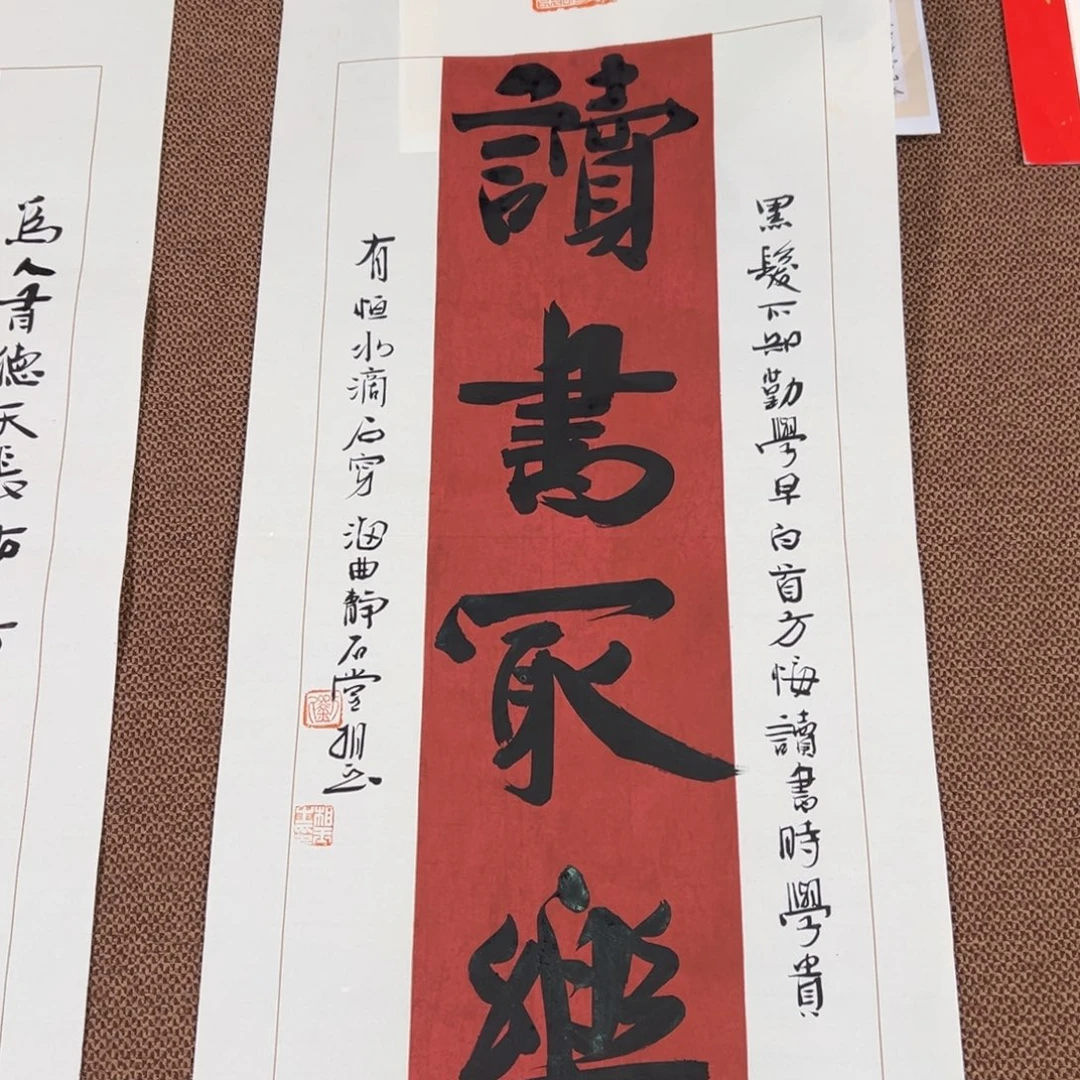 讀書冣樂
黑髮不知勤學早白首方悔讀書時學貴
有恒水滴石穿海曲靜石堂相玉
為人書德天長